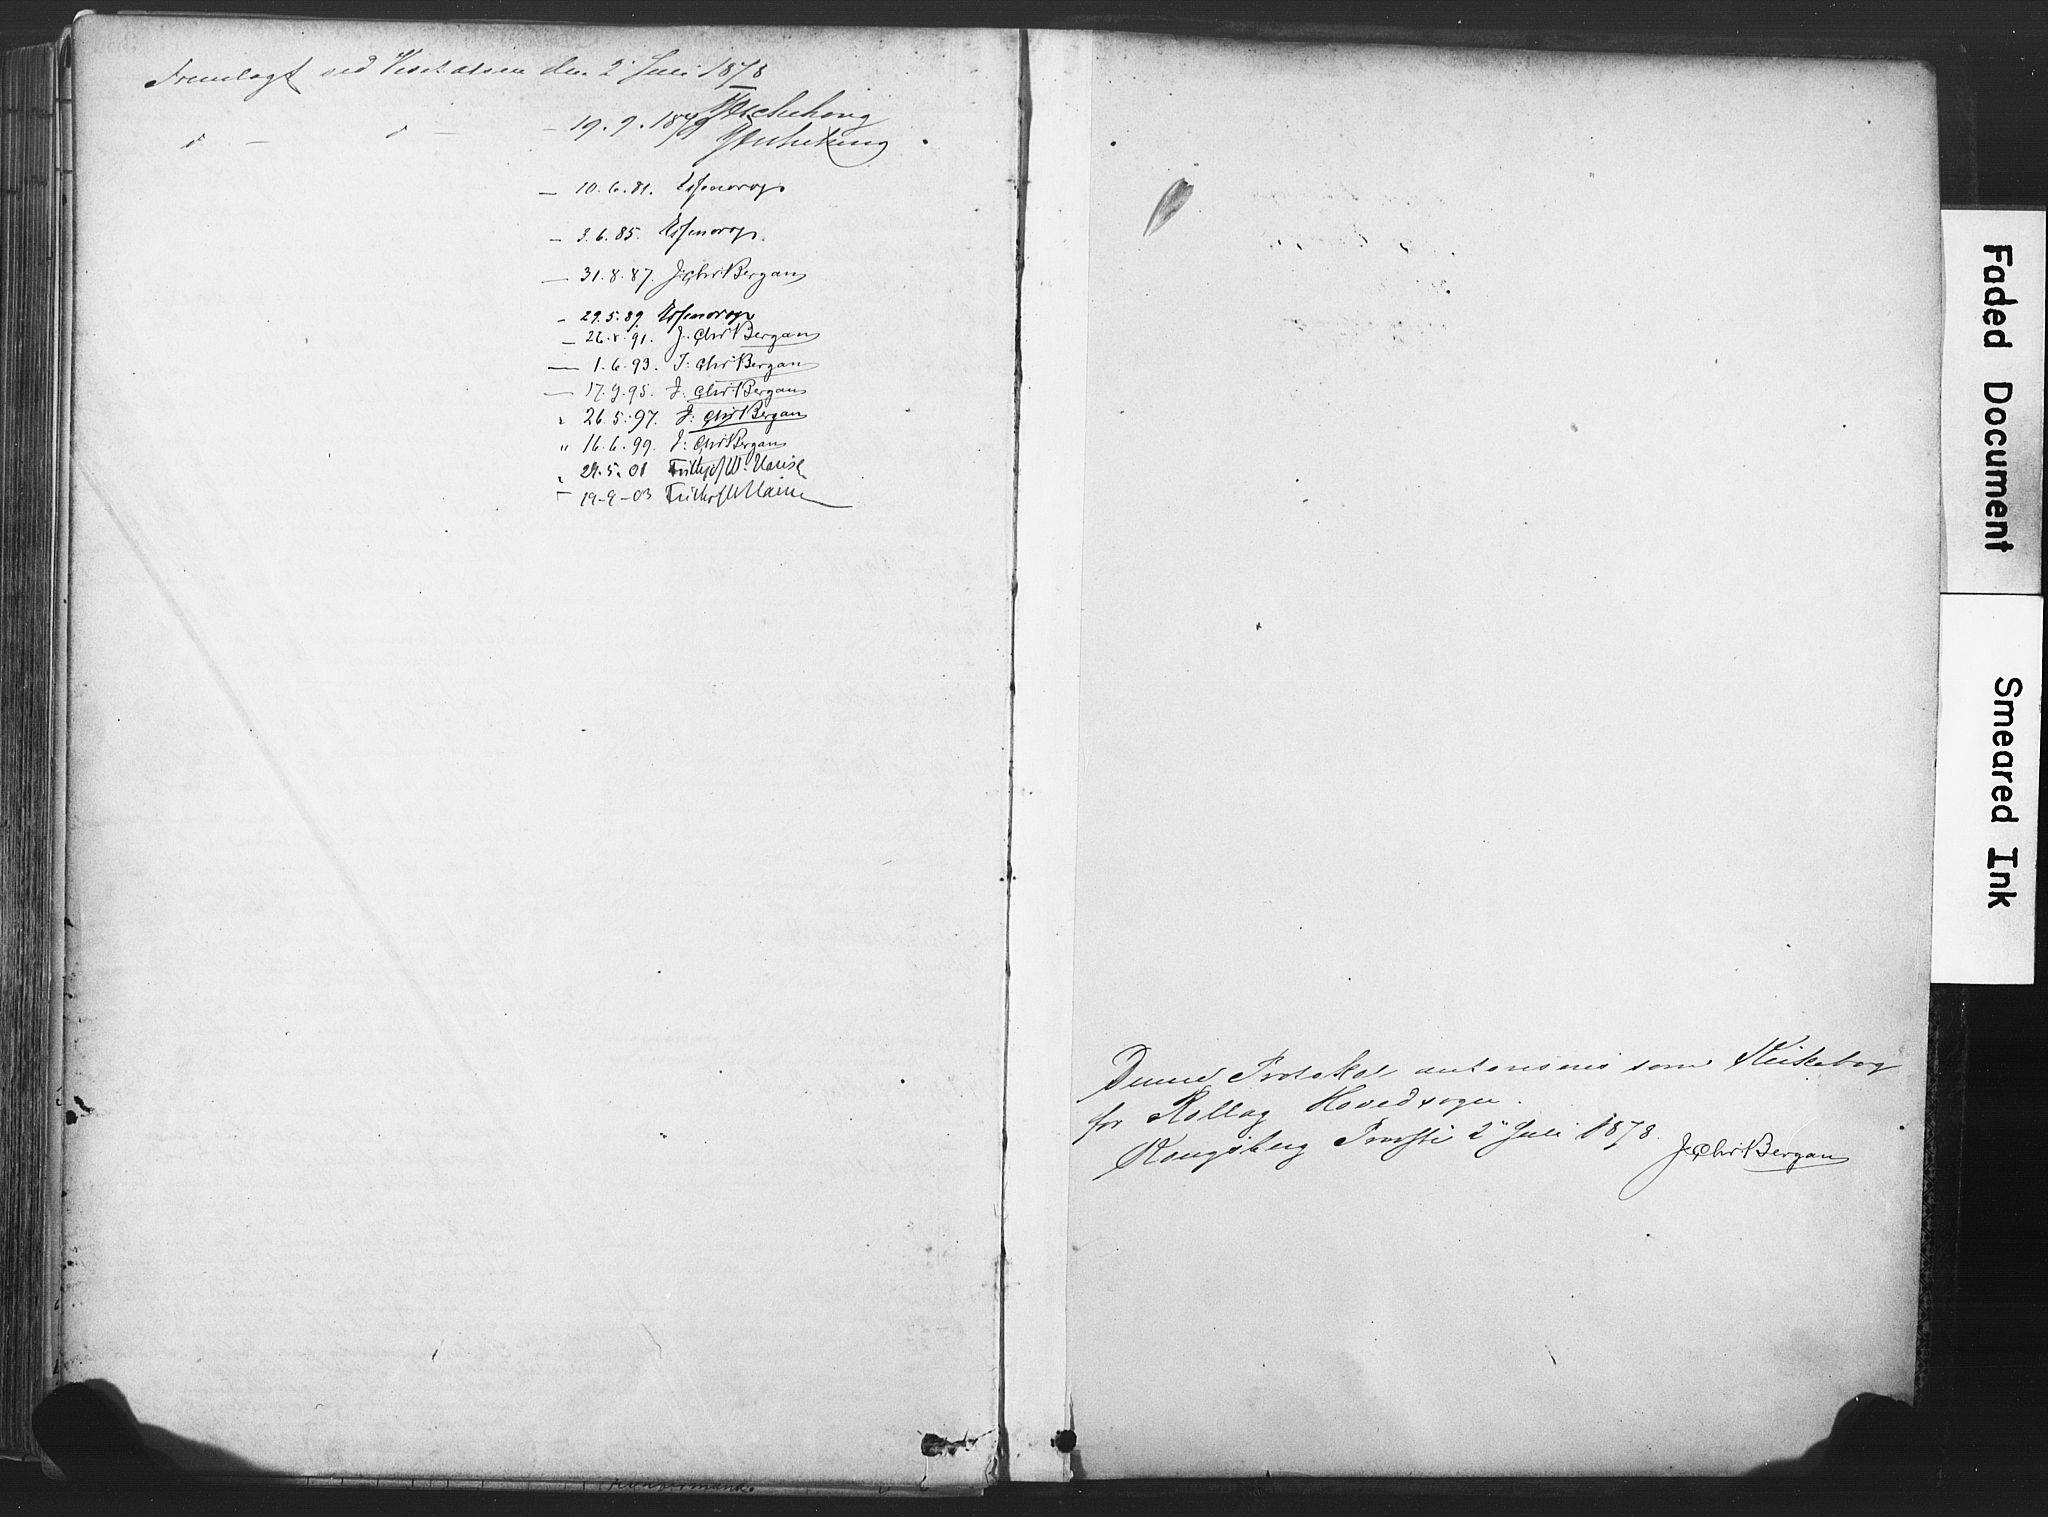 Fremlagt ved Visitatsen den 2 Juli 1878
d — d — — 19.9.1879
— 10.6.81. Essendrop
— 3.6.85. Essendrop
— 31.8.87. J. Chr Bergan
— 29.5.89 Essendrop
— 26.8.91. J. Chr Bergan
— 1.6.93. J. Chr Bergan
— 17.9.95. J. Chr Bergan
" 26.5.97. J. Chr Bergan
" 16.6.99. J. Chr Bergan
" 29.5.01 Frithjof W.
— 19-9-03 Frithjof
Denne Protokol autoriseres som Kirkebog
for Rollag Hovedsogn.
Kongsberg Provsti 2 Juli 1878. J. Chr Bergan
Faded Document
Smeared Ink